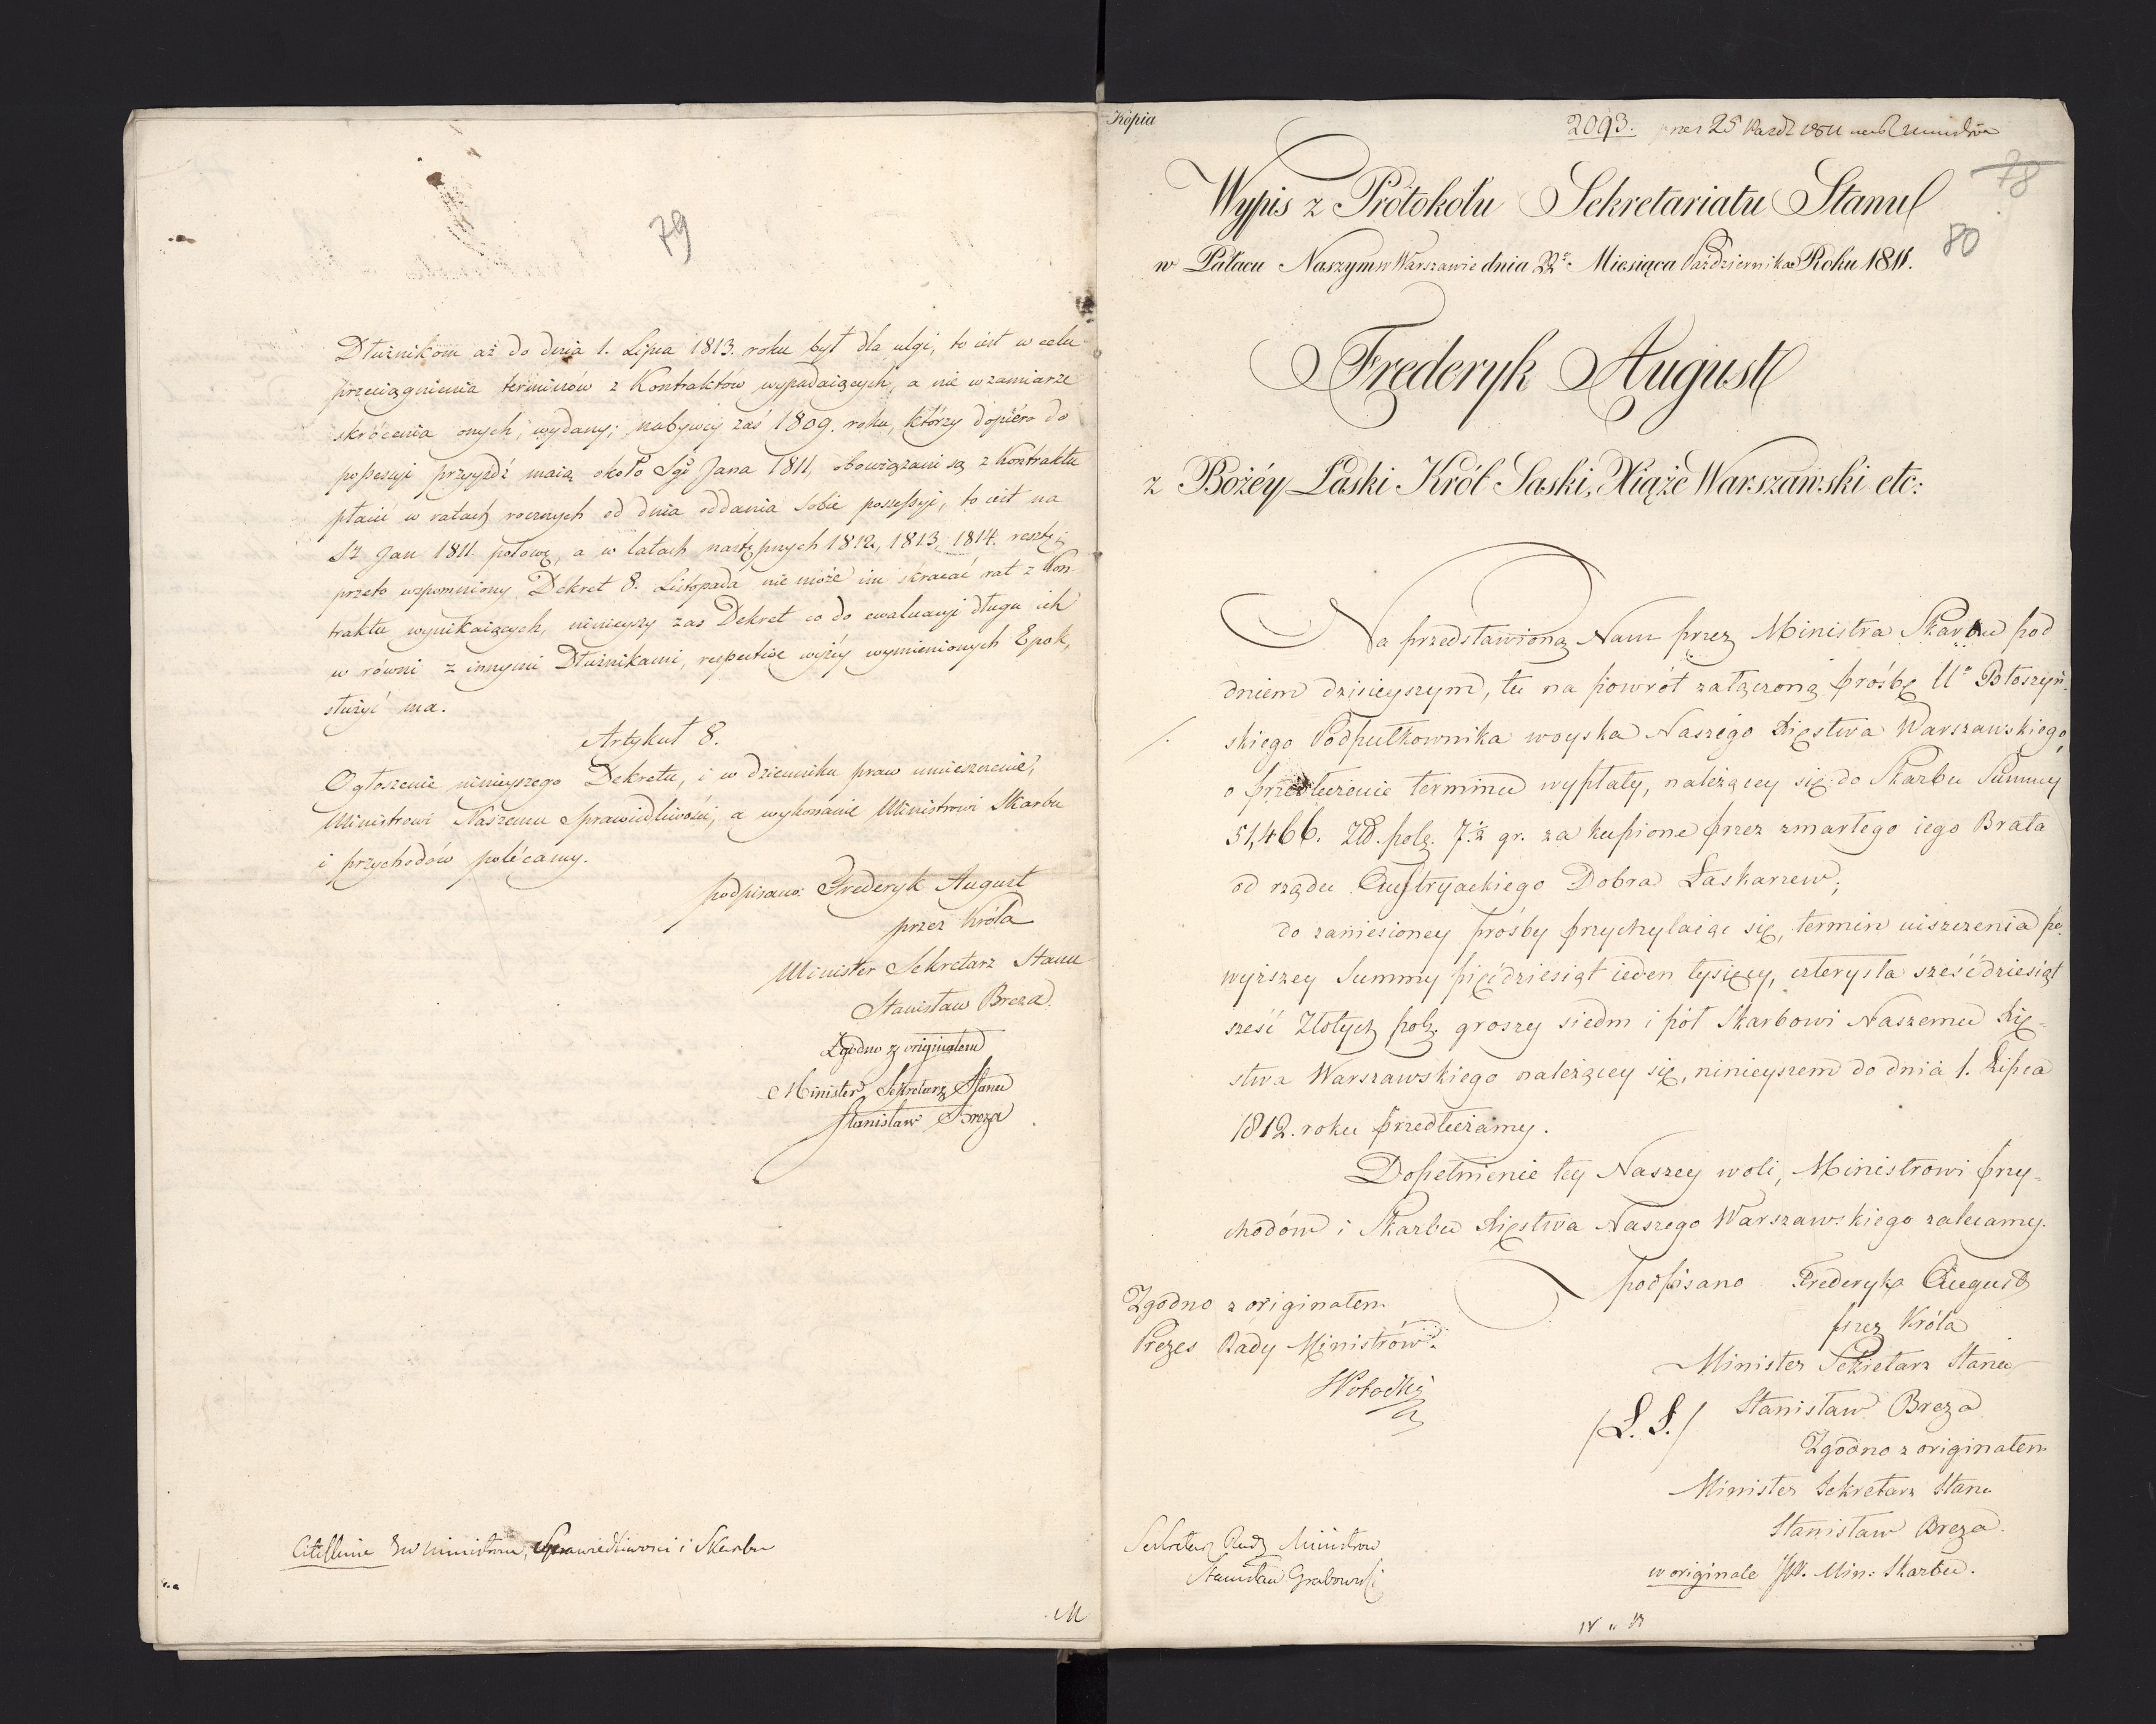 79
Dłużnikom aż do dnia 1. Lipca 1813. roku był dla ulgi, to iest w celu
przeciągnienia terminów z Kontraktów wypadaiących, a nie w zamiarze
skrócenia onych, wydany; nabywcy zaś 1809. roku, którzy dopiéro do
possessyi przyyść maią około Sgo Jana 1811, obowiązani są z Kontraktu
płacić w ratach rocznych od dnia oddania sobie possessyi, to iest na
St Jan 1811. połowę, a w latach następnych 1812, 1813, 1814. resztę;
przeto wspomniony Dekret 8. Listopada nie może im skracać rat z Kon-
traktu wynikaiących, ninieyszy zas Dekret co do ewaluacyi długu ich
w równi z innymi Dłużnikami, respective wyżéy wymienionych Epok,
służyć ma.
Artykuł 8.
Ogłoszenie ninieyszego Dekretu, i w dzienniku praw umieszczenie,
Ministrowi Naszemu Sprawiedliwości, a wykonanie Ministrowi Skarbu
i przychodów polécamy.
podpisano: Frederyk August
przez Króla
Minister Sekretarz Stanu
Stanisław Breza.
Zgodno z originałem
Minister Sekretarz Stanu
Stanisław Breza
Ministrom, Sprawiedliwosci i Skarbu
M
Kopia
2093. 25 Paźdz 1811
78
Wypis z Protokołu Sekretariatu Stanu
80
w Pałacu Naszym w Warszawie dnia 22o Miesiąca Października Roku 1811.
Frederyk August
z Bożéy Łaski Król Saski, Xiąże Warszawski etc:
Na przedstawioną Nam przez Ministra Skarbu pod
dniem dzisieyszym, tu na powrót załączoną prośbę Uo Błoszyń-
skiego Podpułkownika woyska Naszego Xięstwa Warszawskiego,
o przedłużenie terminu wypłaty, należącey się do Skarbu Summy
51,466. Zł. pols. 7 1/2 gr. za kupione przez zmarłego iego Brata
od rządu Austryackiego Dobra Łaskarzew;
do zaniesioney prośby przychylaiąc się, termin uiszczenia po-
wyższey Summy pięćdziesiąt ieden tysięcy, czterysta sześćdziesiąt
sześć Złotych pols. groszy siedm i pół Skarbowi Naszemu Xię-
stwa Warszawskiego należącey się, ninieyszem do dnia 1. Lipca
1812. roku przedłużamy.
Dopełnienie tey Naszey woli, Ministrowi przy-
chodów i Skarbu Xięstwa Naszego Warszawskiego zalecamy.
podpisano Frederyk August
przez Króla
Minister Sekretarz Stanu
(L. S.) Stanisław Breza
Zgodno z originałem
Minister Sekretarz Stanu
Stanisław Breza.
w originale JW. Min: Skarbu.
Zgodno z originałem
Prezes Rady Ministrów.
Sekretarz Rady Ministrow
Stanisław Grabowski